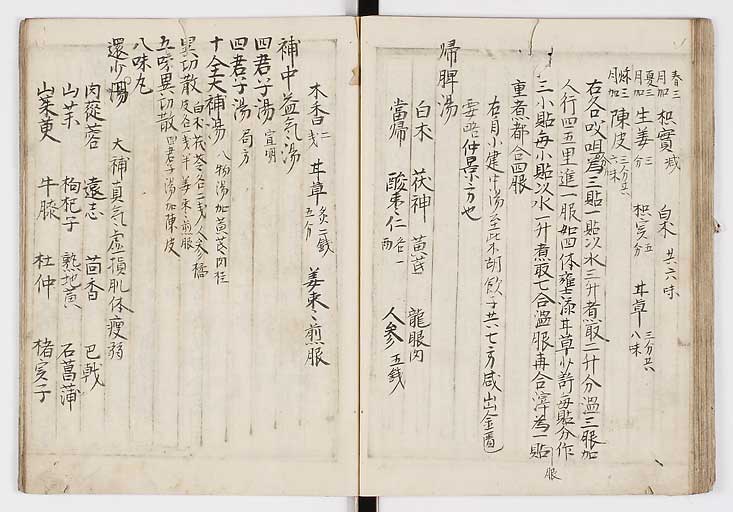 春三月加 枳實 減 白朮 共六味
夏三月加 生姜 三分 枳實 五分 甘草 三分共八味
秋三月加 陳皮 三分共六味
右各㕮咀為三貼一貼以水三升煮取二升分溫三服如
人行四五里進一服如四体壅添甘草少許每貼分作
三小貼每小貼以水一升煮取七合溫服再合滓為一貼服
重煮都合四服
右自小建中湯至此胡飲子共七方咸出金匱
要略仲景方也
帰脾湯
白朮 茯神 黃芪 龍眼肉
當帰 酸棗仁 各一兩 人參 五錢
木香 二戔 甘草 炙二錢五分 姜棗煎服
補中益氣湯
四君子湯 宣明
四君子湯 局方
十全大補湯 八物湯加黃芪肉桂
異功散 白朮茯苓各二戔人參橘皮各一戔半姜棗煎服
五味異功散 四君子湯加陳皮
八味丸
還少湯 大補真氣虛損肌体瘦弱
肉蓯蓉 遠志 茴香 巴戟
山茱 枸杞子 熟地黃 石菖蒲
山茱萸 牛膝 杜仲 楮實子